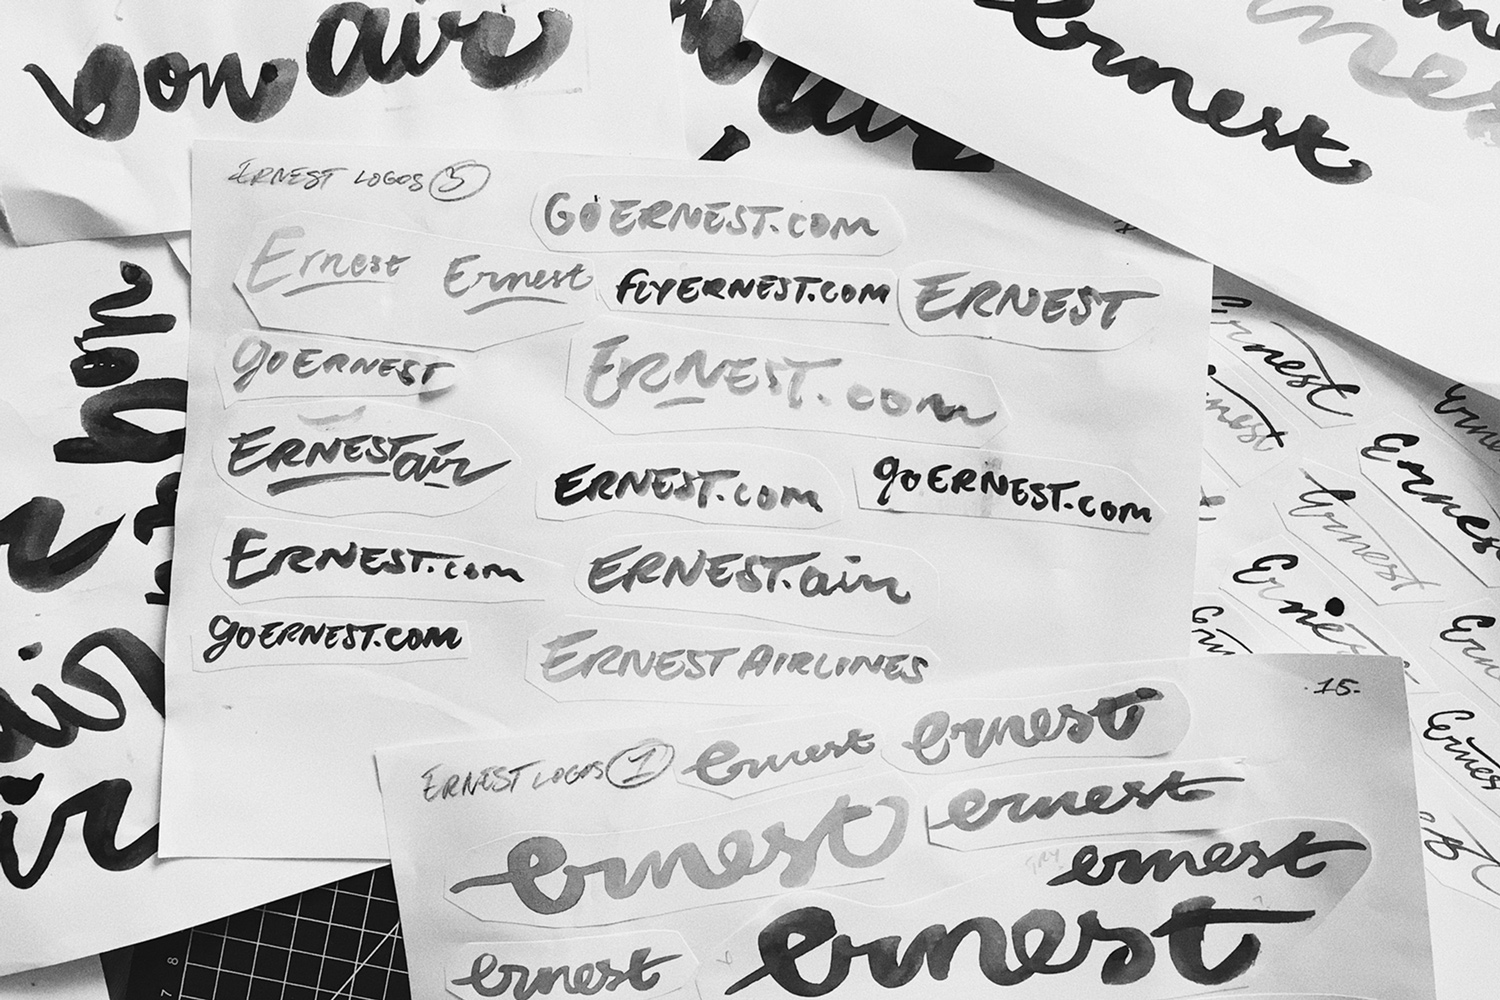 bon air
ernest
ERNEST LOGOS 5
GOERNEST.COM
Ernest Ernest FLYERNEST.COM ERNEST
goERNEST ERNEST.com
ERNESTair ERNEST.com goERNEST.com
ERNEST.com ERNEST.air
goERNEST.COM ERNEST AIRLINES
bon
air
Ernest
Ernest
Ernest
Ernest
-15-
ERNEST LOGOS 1 ernest ernest
ernest ernest
TRY ernest
ernest ernest
8
7